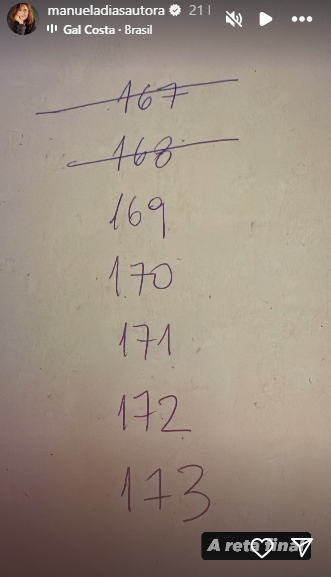 manueladiasautora 21 h
Gal Costa · Brasil
167
168
169
170
171
172
173
A reta final